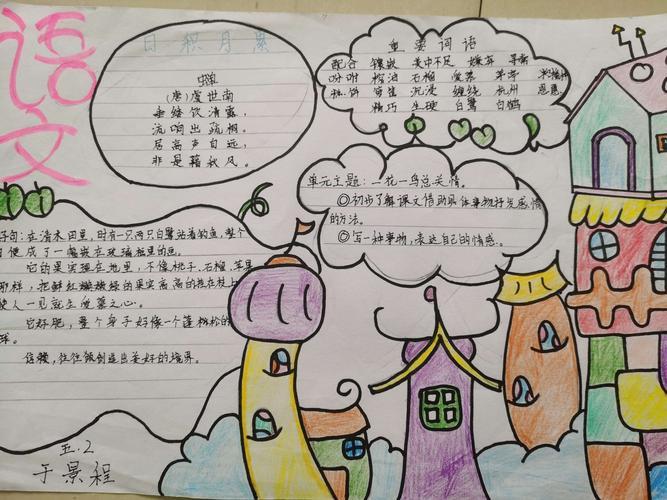 语文
日积月累
蝉
(唐)虞世南
垂緌饮清露,
流响出疏桐。
居高声自远,
非是藉秋风。
重要词语
配合 镶嵌 美中不足 嫌弃 寻常
吩咐 榨油 石榴 爱慕 茅亭
糕饼 寄售 沉浸 缠绕 杭州 恩惠
精巧 生硬 白鹭 白鹤
单元主题:一花一鸟总关情。
◎初步了解课文借助具体事物抒发感情
的方法。
◎写一种事物,表达自己的情感。
好句:在清水田里,时有一只两只白鹭站着钓鱼,整个
田便成了一幅嵌在玻璃框里的画。
它的果实埋在地里,不像桃子、石榴、苹果
那样,把鲜红嫩绿的果实高高的挂在枝上
使人一见就生爱慕之心。
它好肥,整个身子好像一个蓬松的
球。
信赖,往往能创造出美好的境界。
五.2
于景程